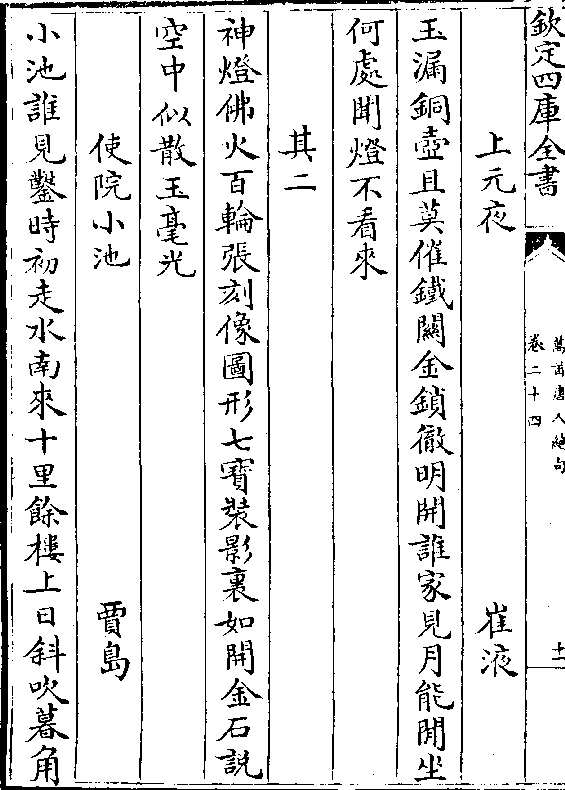 欽定四庫全書
萬首唐人絶句
卷二十四
十一
上元夜 崔液
玉漏銅壺且莫催鐵關金鎖徹明開誰家見月能閒坐
何處聞燈不看來
其二
神燈佛火百輪張刻像圖形七寶裝影裏如開金石説
空中似散玉毫光
使院小池 賈島
小池誰見鑿時初走水南來十里餘樓上日斜吹暮角